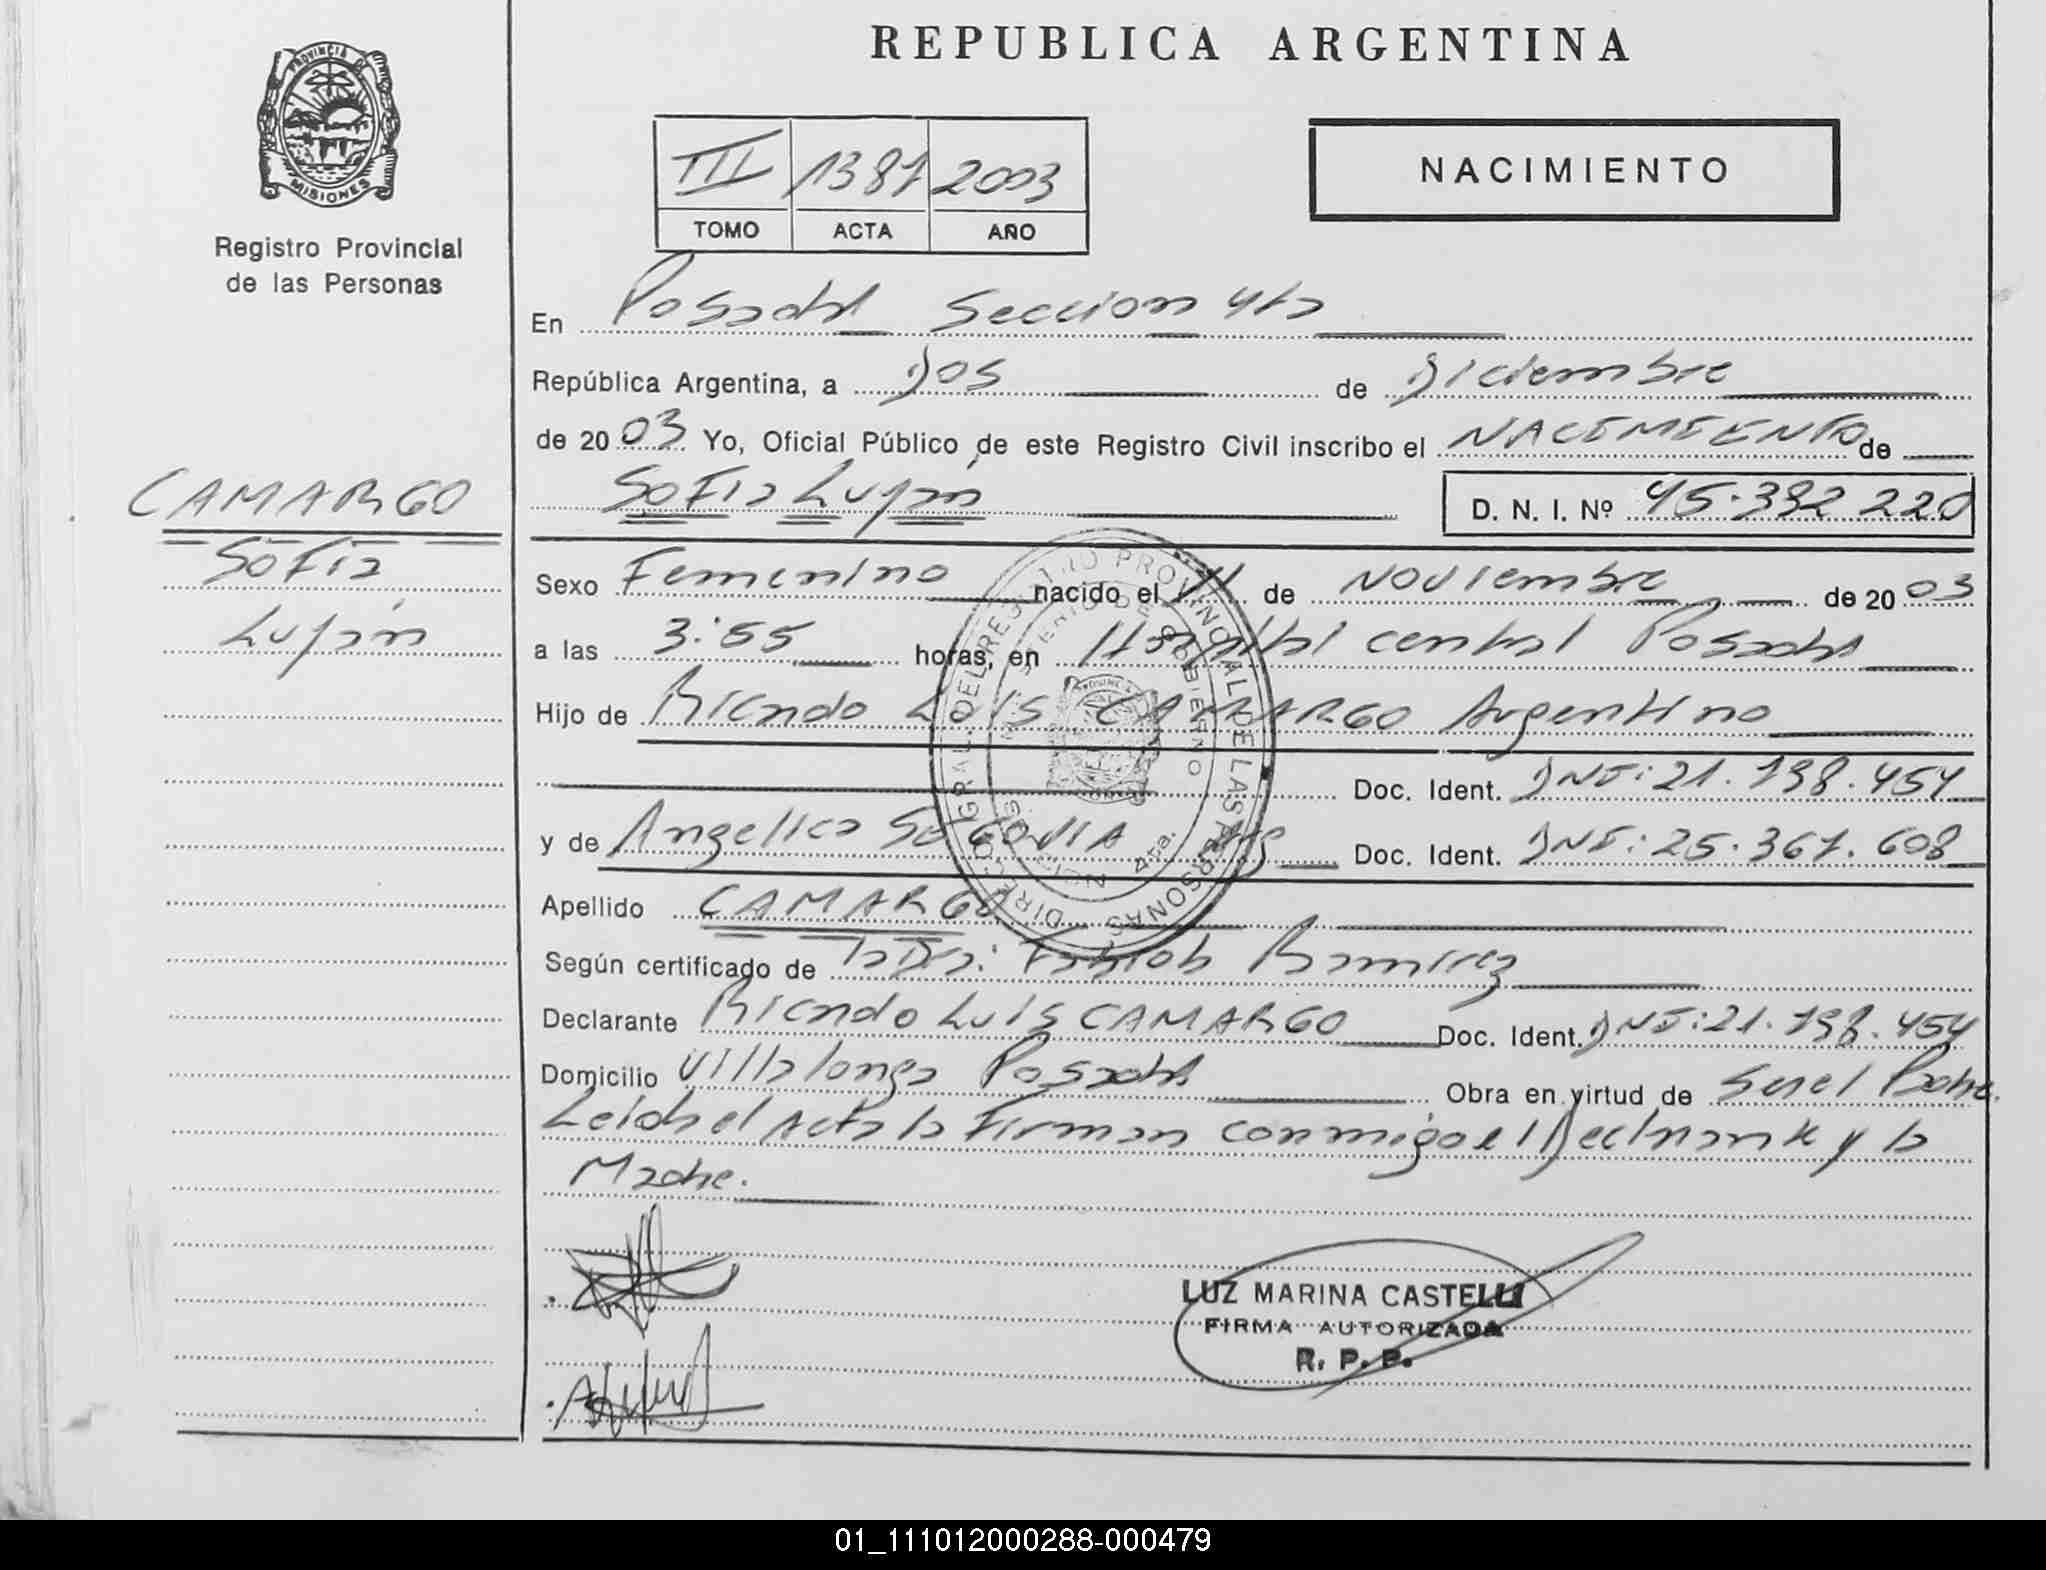 REPUBLICA ARGENTINA
PROVINCIA DE
MISIONES
Registro Provincial
de las Personas
III 1387 2003
TOMO ACTA AÑO
NACIMIENTO
En Posadas Seccion 4ta
República Argentina, a Dos de Diciembre
de 2003 Yo, Oficial Público de este Registro Civil inscribo el NACIMIENTO de
Sofia Luján D. N. I. Nº 45.392 220
CAMARGO
Sofia
Luján
Sexo Femenino nacido el 11 de Noviembre de 2003
a las 3:55 horas, en Hospital central Posadas
Hijo de Ricardo Luis CAMARGO Argentino
Doc. Ident. DNI: 21.198.454
y de Angelica SEGOVIA Arg Doc. Ident. DNI: 25.367.608
Apellido CAMARGO
Según certificado de la Dra: Fabiola Ramirez
Declarante Ricardo Luis CAMARGO Doc. Ident. DNI: 21.198.454
Domicilio Villalonga Posadas Obra en virtud de Ser el Padre.
Leida el Acta la Firman conmigo el Declarante y la
Madre.
DIRECC. GRAL. DEL REGISTRO PROVINCIAL DE LAS PERSONAS
MINISTERIO DE GOBIERNO
4ta.
LUZ MARINA CASTELLI
FIRMA AUTORIZADA
R. P. P.
01_111012000288-000479